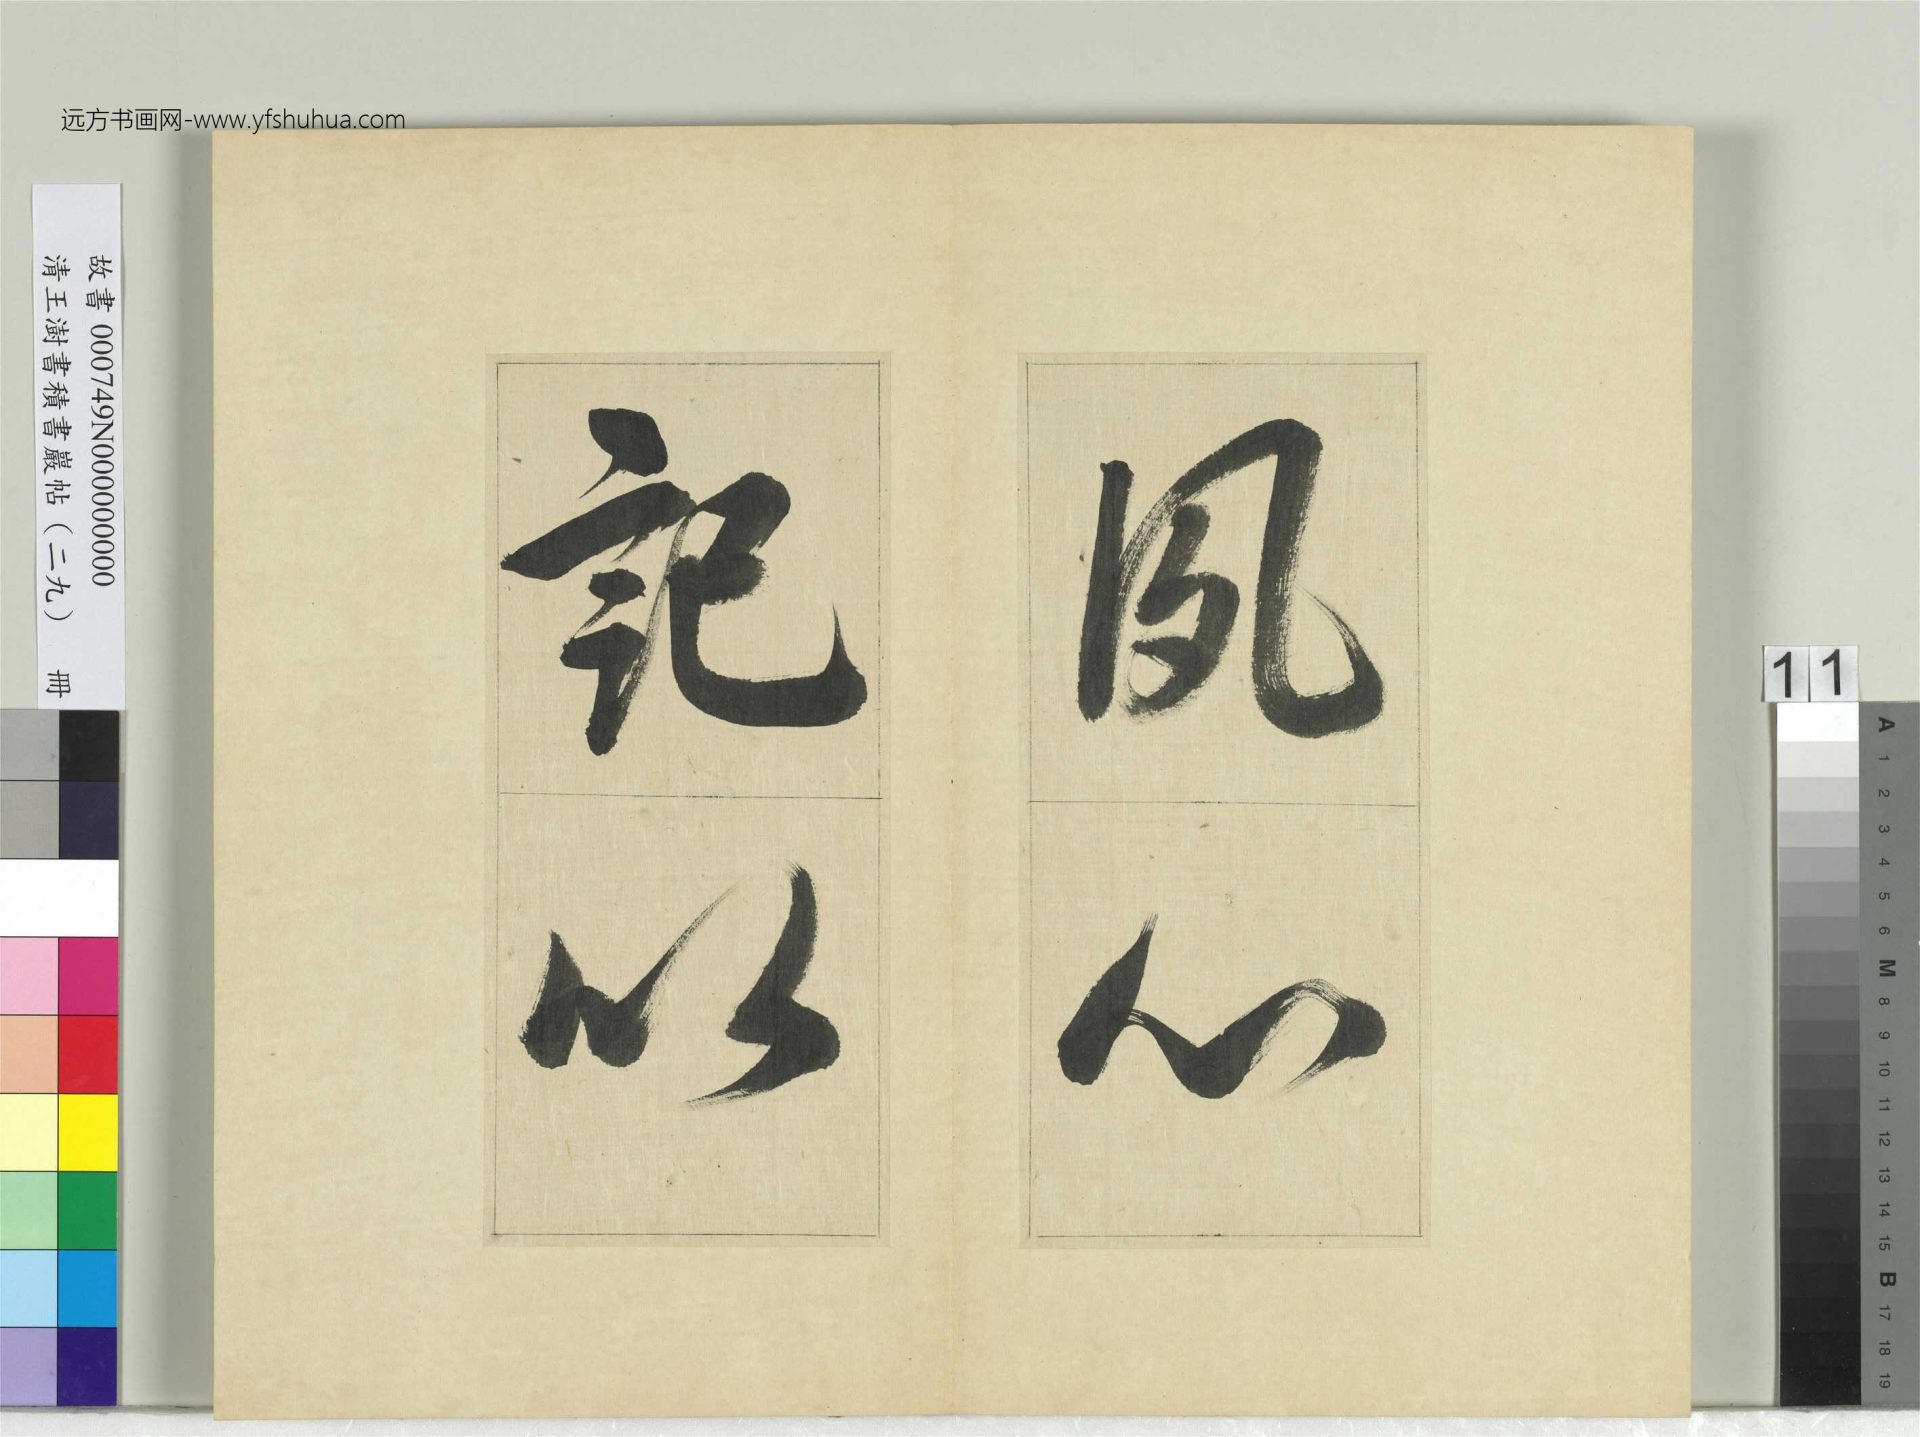 远方书画网-www.yfshuhua.com
故書 000749N000000000
清王澍書積書巖帖（二九） 冊
夙心
記以
11
A
1
2
3
4
5
6
M
8
9
10
11
12
13
14
15
B
17
18
19